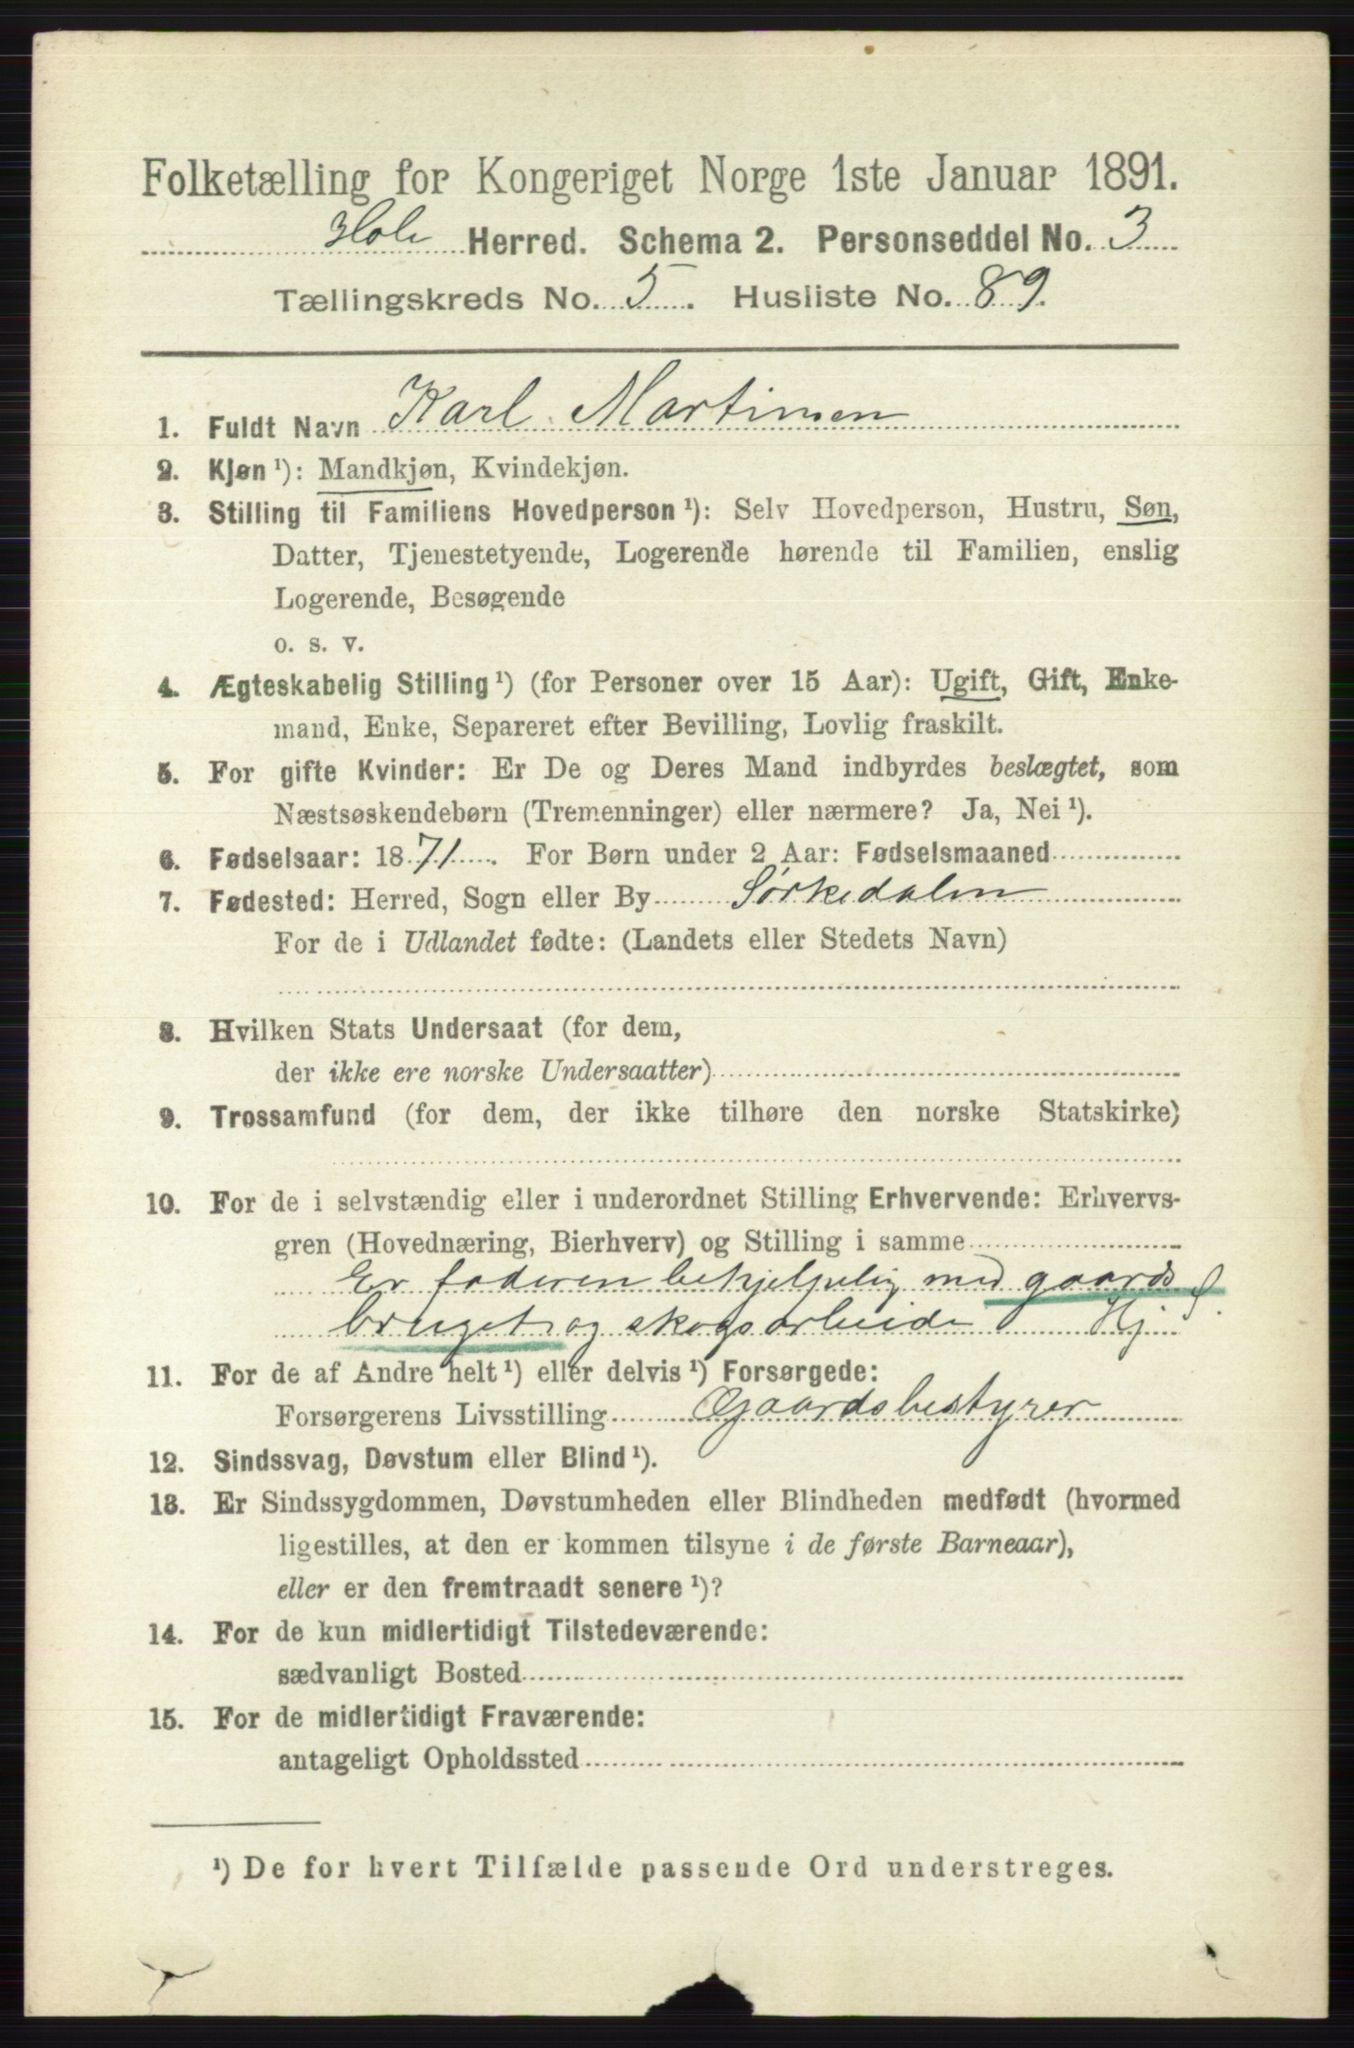 Folketælling for Kongeriget Norge 1ste Januar 1891.
Hole Herred. Schema 2. Personseddel No. 3
Tællingskreds No. 5. Husliste No. 89.
1. Fuldt Navn Karl Martinsen
2. Kjøn ¹): Mandkjøn, Kvindekjøn.
3. Stilling til Familiens Hovedperson ¹): Selv Hovedperson, Hustru, Søn,
Datter, Tjenestetyende, Logerende hørende til Familien, enslig
Logerende, Besøgende
o. s. v.
4. Ægteskabelig Stilling ¹) (for Personer over 15 Aar): Ugift, Gift, Enke-
mand, Enke, Separeret efter Bevilling, Lovlig fraskilt.
5. For gifte Kvinder: Er De og Deres Mand indbyrdes beslægtet, som
Næstsøskendebørn (Tremenninger) eller nærmere? Ja, Nei ¹).
6. Fødselsaar: 1871. For Børn under 2 Aar: Fødselsmaaned
7. Fødested: Herred, Sogn eller By Sørkedalen
For de i Udlandet fødte: (Landets eller Stedets Navn)
8. Hvilken Stats Undersaat (for dem,
der ikke ere norske Undersaatter)
9. Trossamfund (for dem, der ikke tilhøre den norske Statskirke)
10. For de i selvstændig eller i underordnet Stilling Erhvervende: Erhvervs-
gren (Hovednæring, Bierhverv) og Stilling i samme
Er faderen behjelpelig med gaards
bruget og skogsarbeide Hj S.
11. For de af Andre helt ¹) eller delvis ¹) Forsørgede:
Forsørgerens Livsstilling Gaardsbestyrer
12. Sindssvag, Døvstum eller Blind ¹).
13. Er Sindssygdommen, Døvstumheden eller Blindheden medfødt (hvormed
ligestilles, at den er kommen tilsyne i de første Barneaar),
eller er den fremtraadt senere ¹)?
14. For de kun midlertidigt Tilstedeværende:
sædvanligt Bosted
15. For de midlertidigt Fraværende:
antageligt Opholdssted
¹) De for hvert Tilfælde passende Ord understreges.